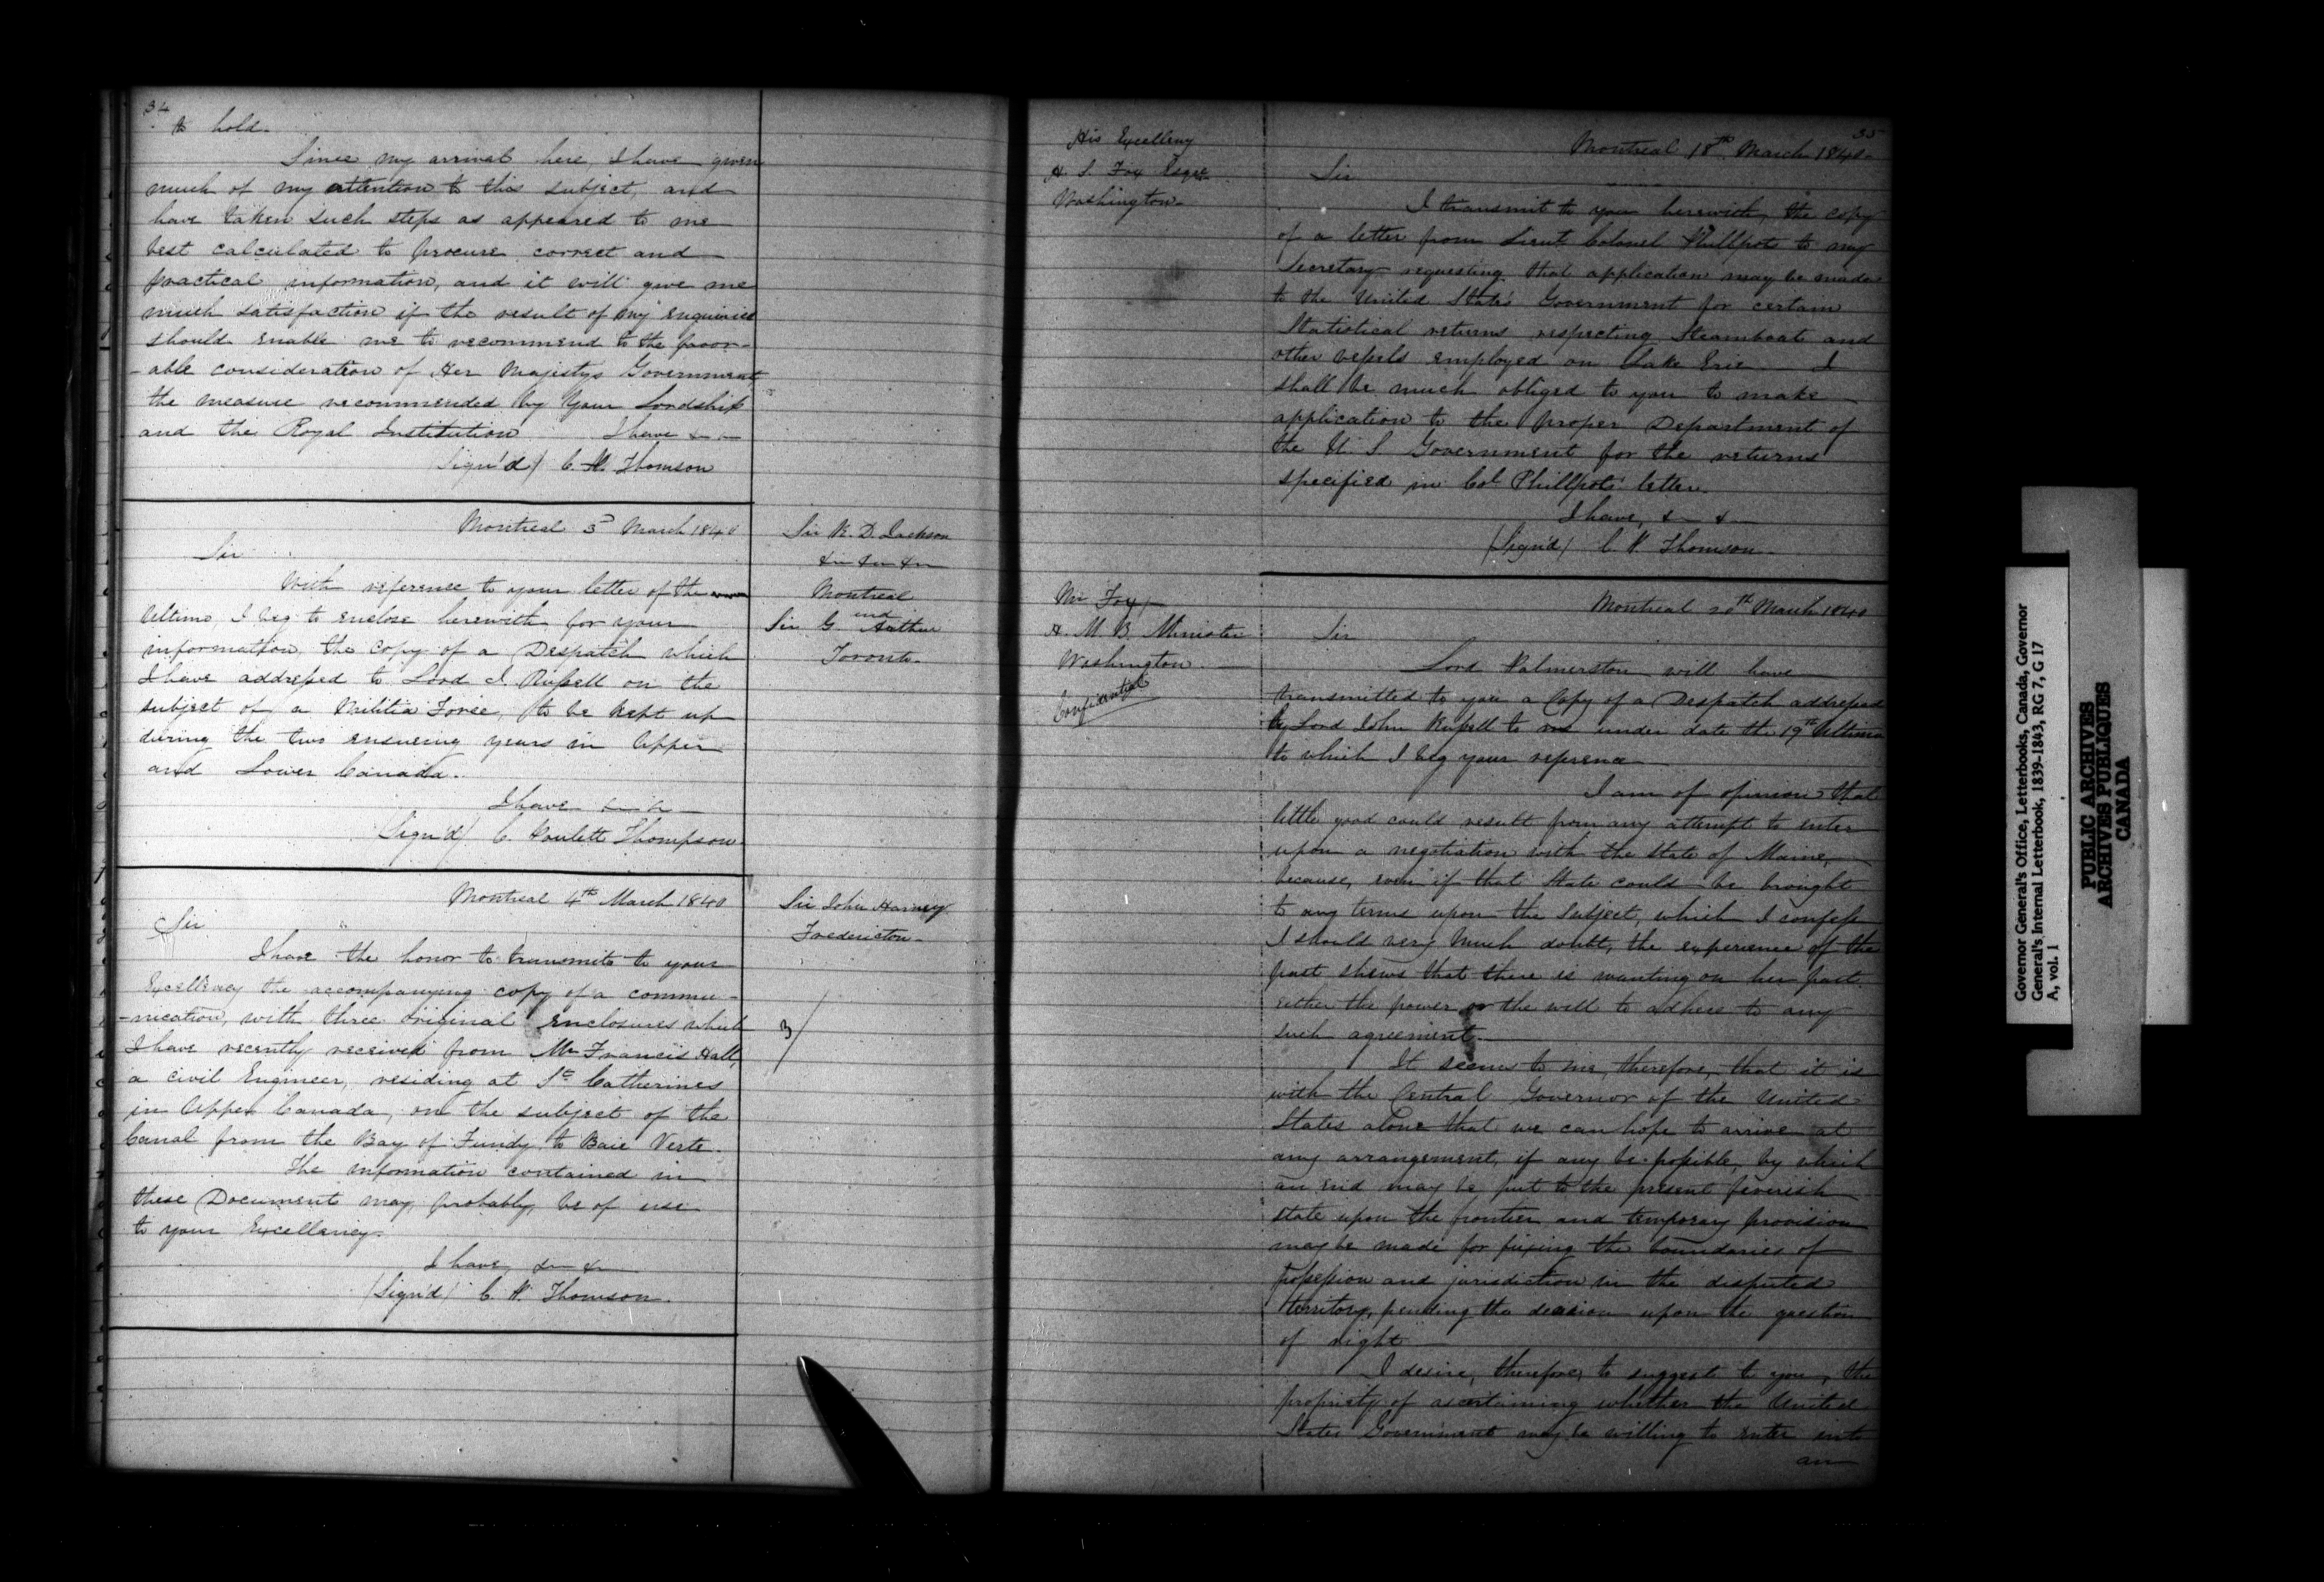 34
to hold.
Since my arrival here, I have given
much of my attention to this subject, and
have taken such steps as appeared to me
best calculated to procure correct and
practical information, and it will give me
much satisfaction if the result of my enquiries
should enable me to recommend to the favor-
-able consideration of Her Majestys Government
the measure recommended by Your Lordship
and the Royal Institution I have &c
Sign'd/ C. P. Thomson
Montreal 3d March 1840
Sir
With reference to your letter of the
Ultimo I beg to enclose herewith for your
information the copy of a Despatch which
I have addressed to Lord J. Russell on the
subject of a Militia Force, to be kept up
during the two ensuing years in Upper
and Lower Canada.
I have &c &c
Sign'd/ C. Poulett Thompson
Sir R. D. Jackson
&c &c &c
Montreal
and
Sir G. Arthur
Toronto.
Montreal 4th March 1840
Sir
I have the honor to transmit to your
Excellency the accompanying copy of a commu-
-nication, with three original enclosures which
I have recently received from Mr Francis Hall,
a civil Engineer, residing at St Catherines
in Upper Canada, on the subject of the
Canal from the Bay of Fundy to Baie Verte.
The information contained in
these Document may, probably, be of use
to your Excellency.
I have, &c &c
/Sign'd/ C. P. Thomson.
Sir John Harvey
Fredericton.
3/
35
His Excellency
H. S. Fox Esqre
Washington.
Montreal 18th March 1840.
Sir
I transmit to you herewith, the copy
of a letter from Lieut Colonel Phillpots to my
Secretary requesting that application may be made
to the United State's Government for certain
Statistical returns respecting Steamboats and
other vessels employed on Lake Erie I
shall be much obliged to you to make
application to the proper Department of
the U. S Government for the returns
specified in Col Phillpots' letter.
I have, &c &c
/Sign'd/ C P. Thomson.
Mr Fox,
H. M B. Minister
Washington.
Confidential
Montreal 20th March 1840
Sir
Lord Palmerston will have
transmitted to you a Copy of a Despatch addressed
by Lord John Russell to me under date the 19th Ultimo
to which I beg your reference
I am of opinion that
little good could result from any attempt to enter
upon a negotiation with the State of Maine,
because, even if that State could be brought
to any terms upon the subject, which I confess
I should very much doubt, the experience of the
past shews that there is wanting on her part
either the power or the will to adhere to any
such agreement.
It seems to me, therefore, that it is
with the Central Governor of the United
States alone that we can hope to arrive at
any arrangement, if any be possible, by which
an end may be put to the present feverish
state upon the frontier and temporary provision
may be made for fixing the boundaries of
possession and jurisdiction in the disputed
territory, pending the decision upon the question
of right
I desire, therefore, to suggest to you, the
propriety of ascertaining whether the United
States Government may be willing to enter into
an
Governor General's Office, Letterbooks, Canada, Governor
General's Internal Letterbook, 1839-1843, RG 7, G 17
A, vol. 1
PUBLIC ARCHIVES
ARCHIVES PUBLIQUES
CANADA